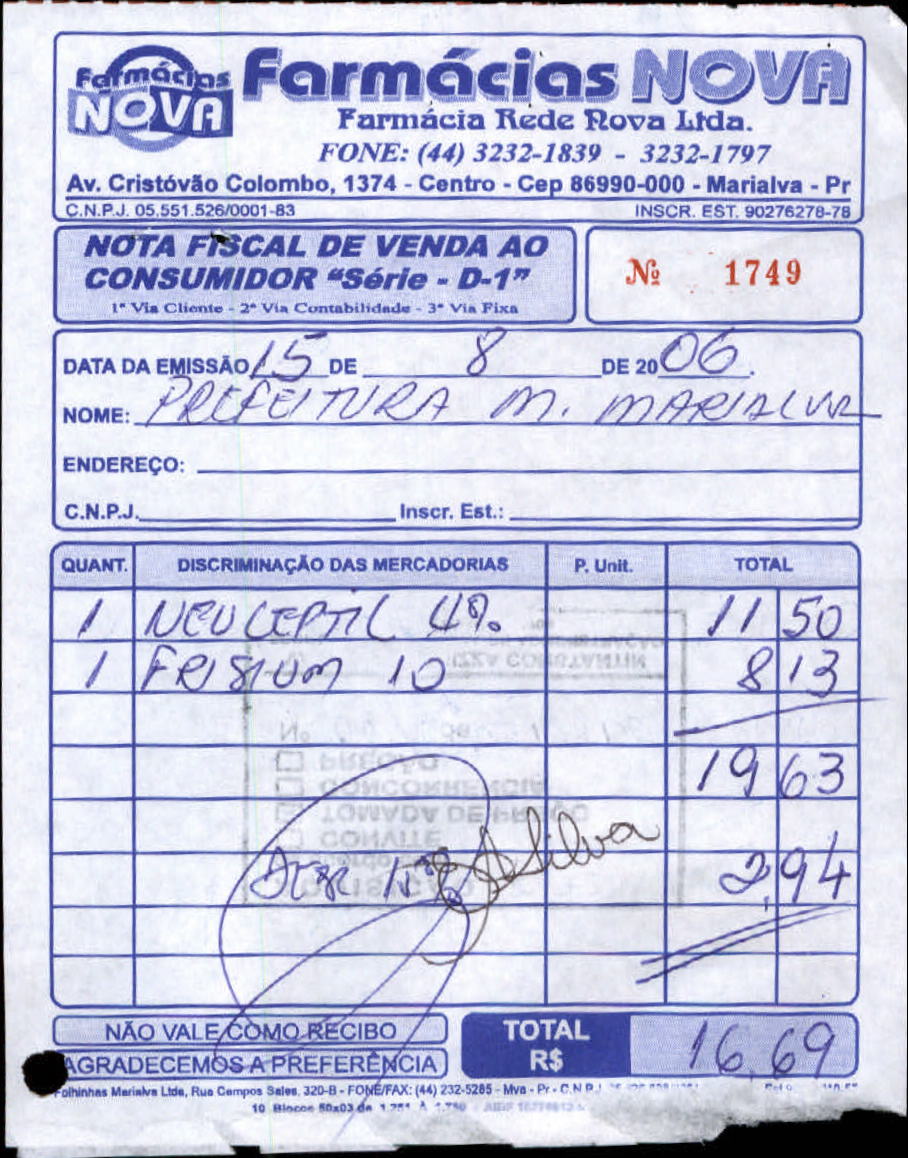 Farmácias
NOVA
Farmácias NOVA
Farmácia Rede Nova Ltda.
FONE: (44) 3232-1839 - 3232-1797
Av. Cristóvão Colombo, 1374 - Centro - Cep 86990-000 - Marialva - Pr
C.N.P.J. 05.551.526/0001-83 INSCR. EST. 90276278-78
NOTA FISCAL DE VENDA AO
CONSUMIDOR "Série - D-1"
1ª Via Cliente - 2ª Via Contabilidade - 3ª Via Fixa
Nº 1749
DATA DA EMISSÃO 15 DE 8 DE 2006.
NOME: PREFEITURA M. MARIALVA
ENDEREÇO:
C.N.P.J. Inscr. Est.:
QUANT. DISCRIMINAÇÃO DAS MERCADORIAS P. Unit. TOTAL
1 NEULEPTIL 4% 11 50
1 FRISIUM 10 8 13
19 63
PREGÃO
CONCORRENCIA
TOMADA DE PREÇO
CONVITE
Silva
2,94
NÃO VALE COMO RECIBO
AGRADECEMOS A PREFERÊNCIA
TOTAL
R$ 16,69
Folhinhas Marialva Ltda, Rua Campos Sales, 320-B - FONE/FAX: (44) 232-5285 - Mva - Pr - C.N.P.J.
10 Blocos 50x03 de 1.251 À 1.750